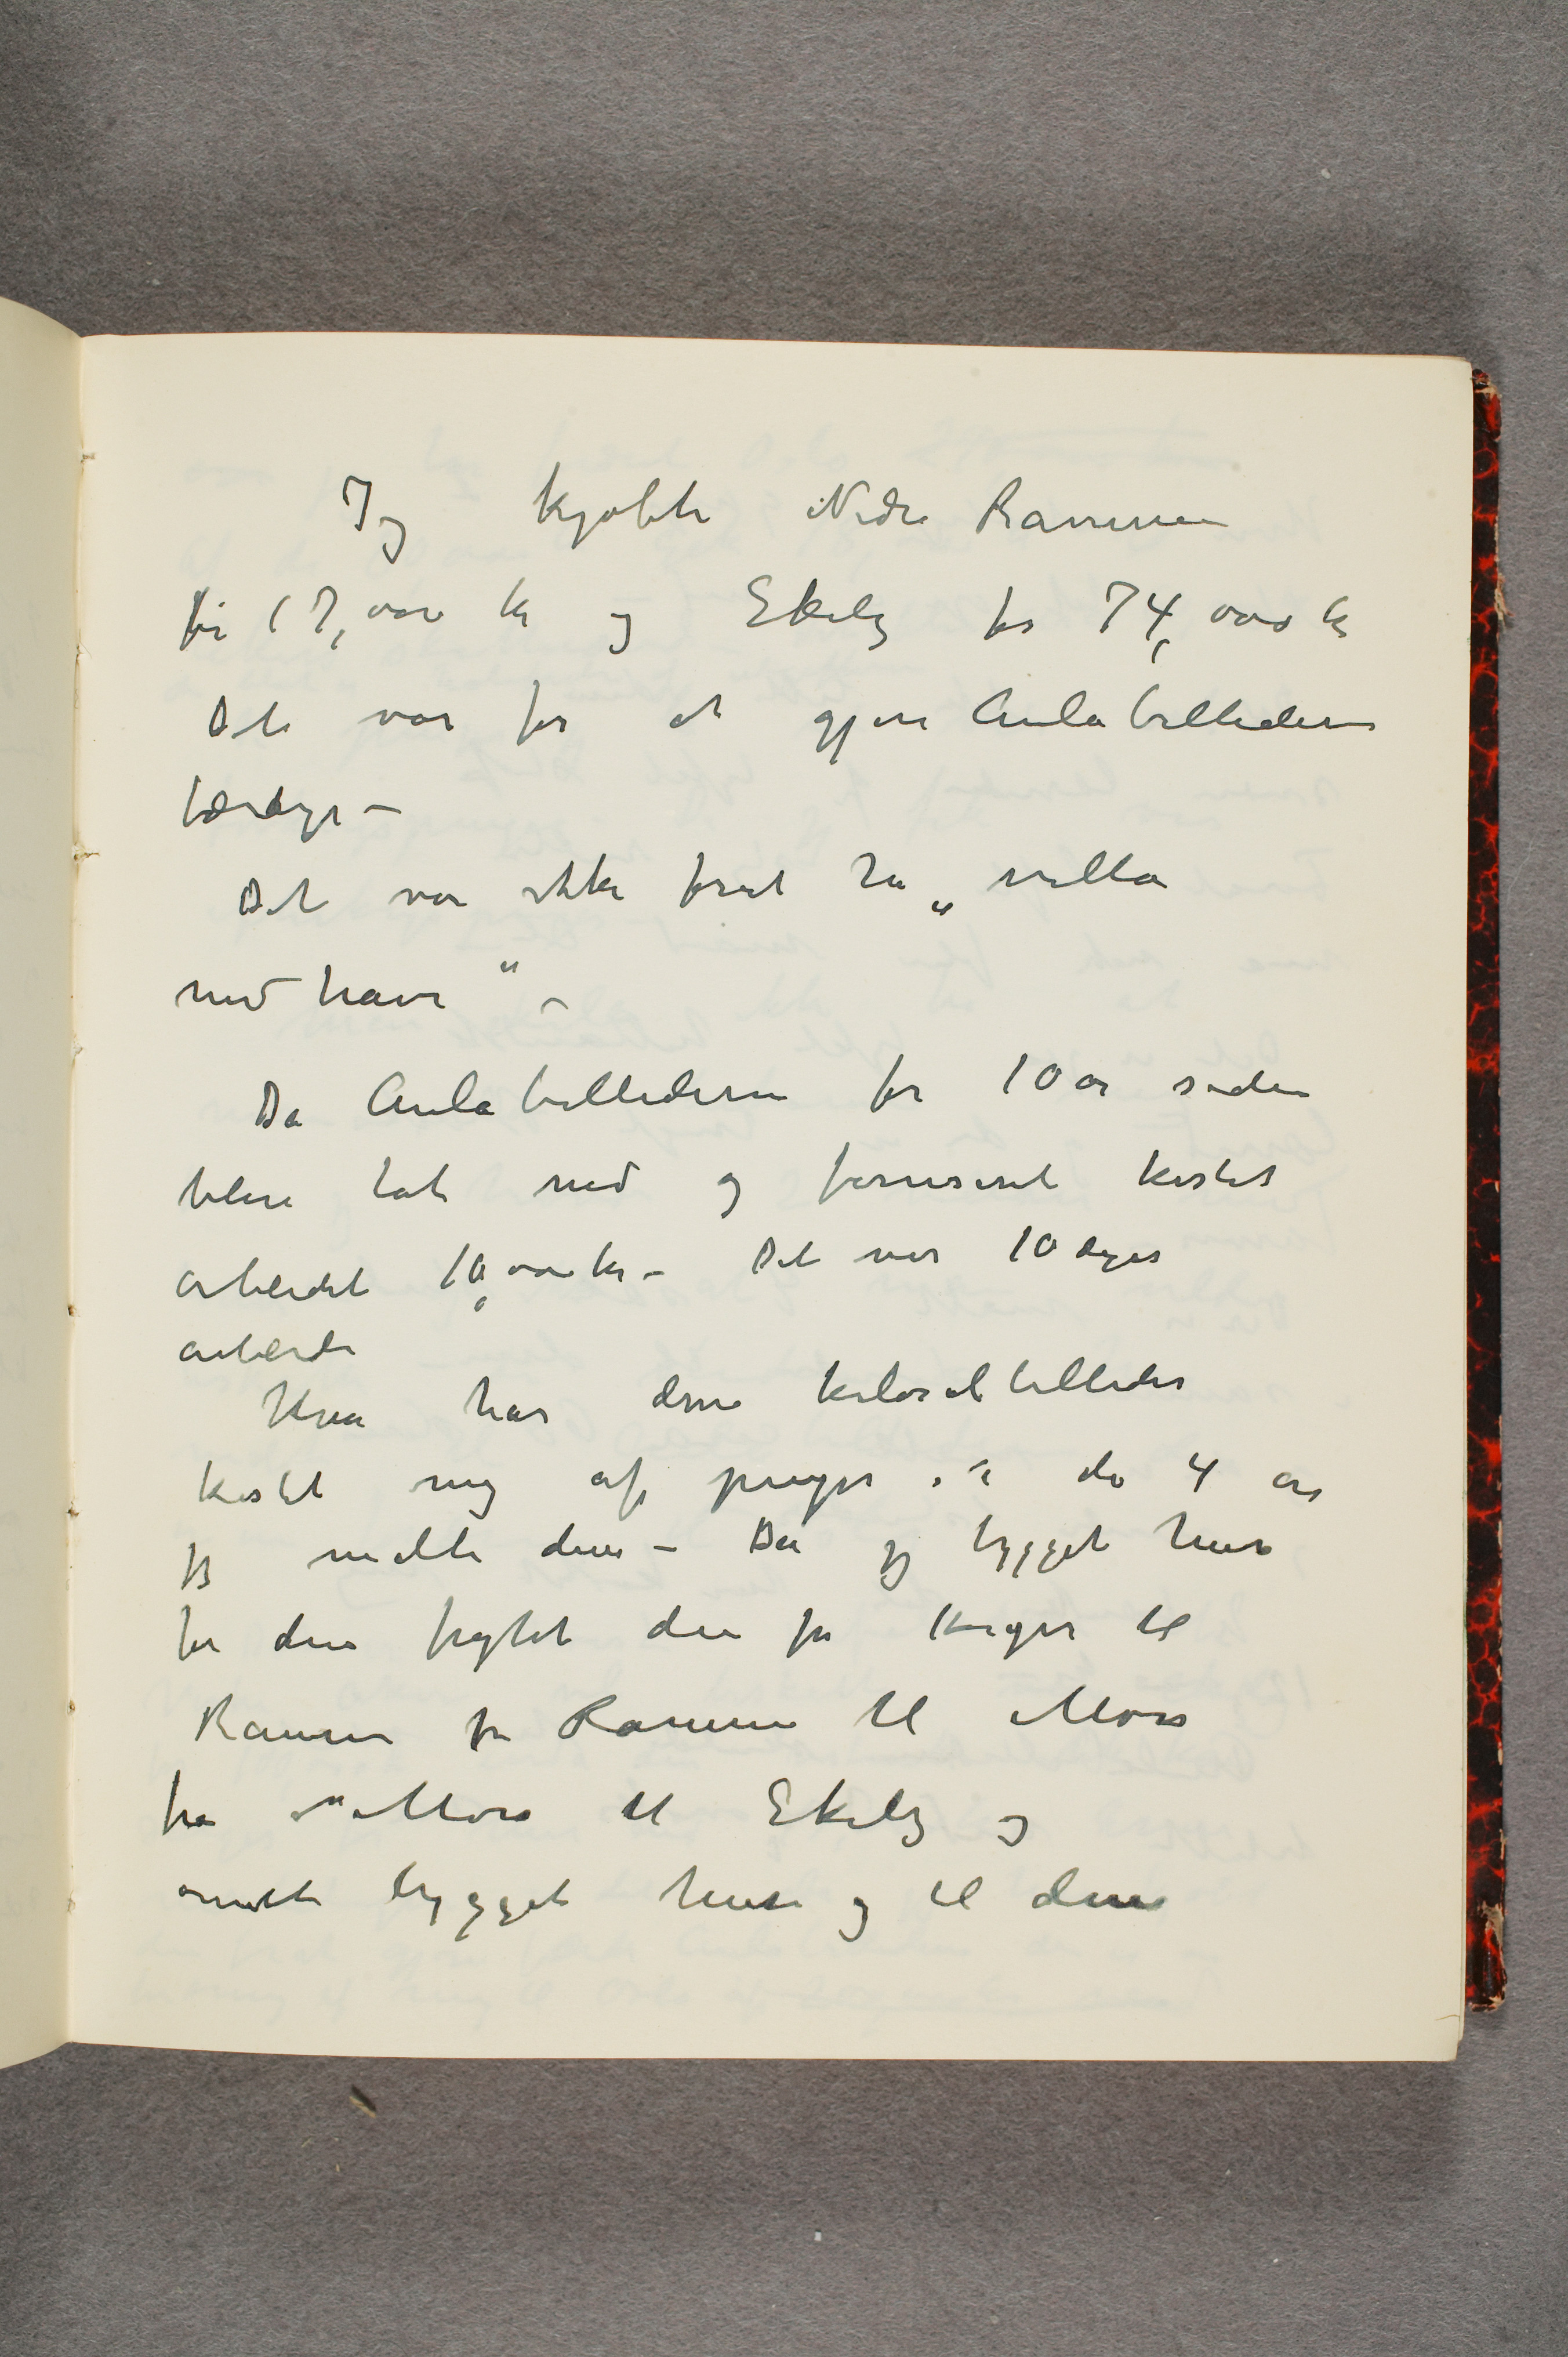 Jeg kjøbte Nedre Rammen
for 17,000 kr og Ekely for 74,000 kr
Det var for at gjøre Aulabillederne
færdige –
Det var ikke forat ha „villa
med have“ –
Da Aulabillederne for 10 år siden
blev tat ned og ferniseret kostet
arbeidet 10,000 kr – Det var 10 dages
arbeide
Hva har disse kolosalbilleder
kostet mig af penger i de 4 år
jeg malte dem – Da jeg bygget hus
for dem fragtet dem fra Kragerø til
Rammen fra Rammen til Moss
fra Moss til Ekely og
måtte bygget huse og til dem